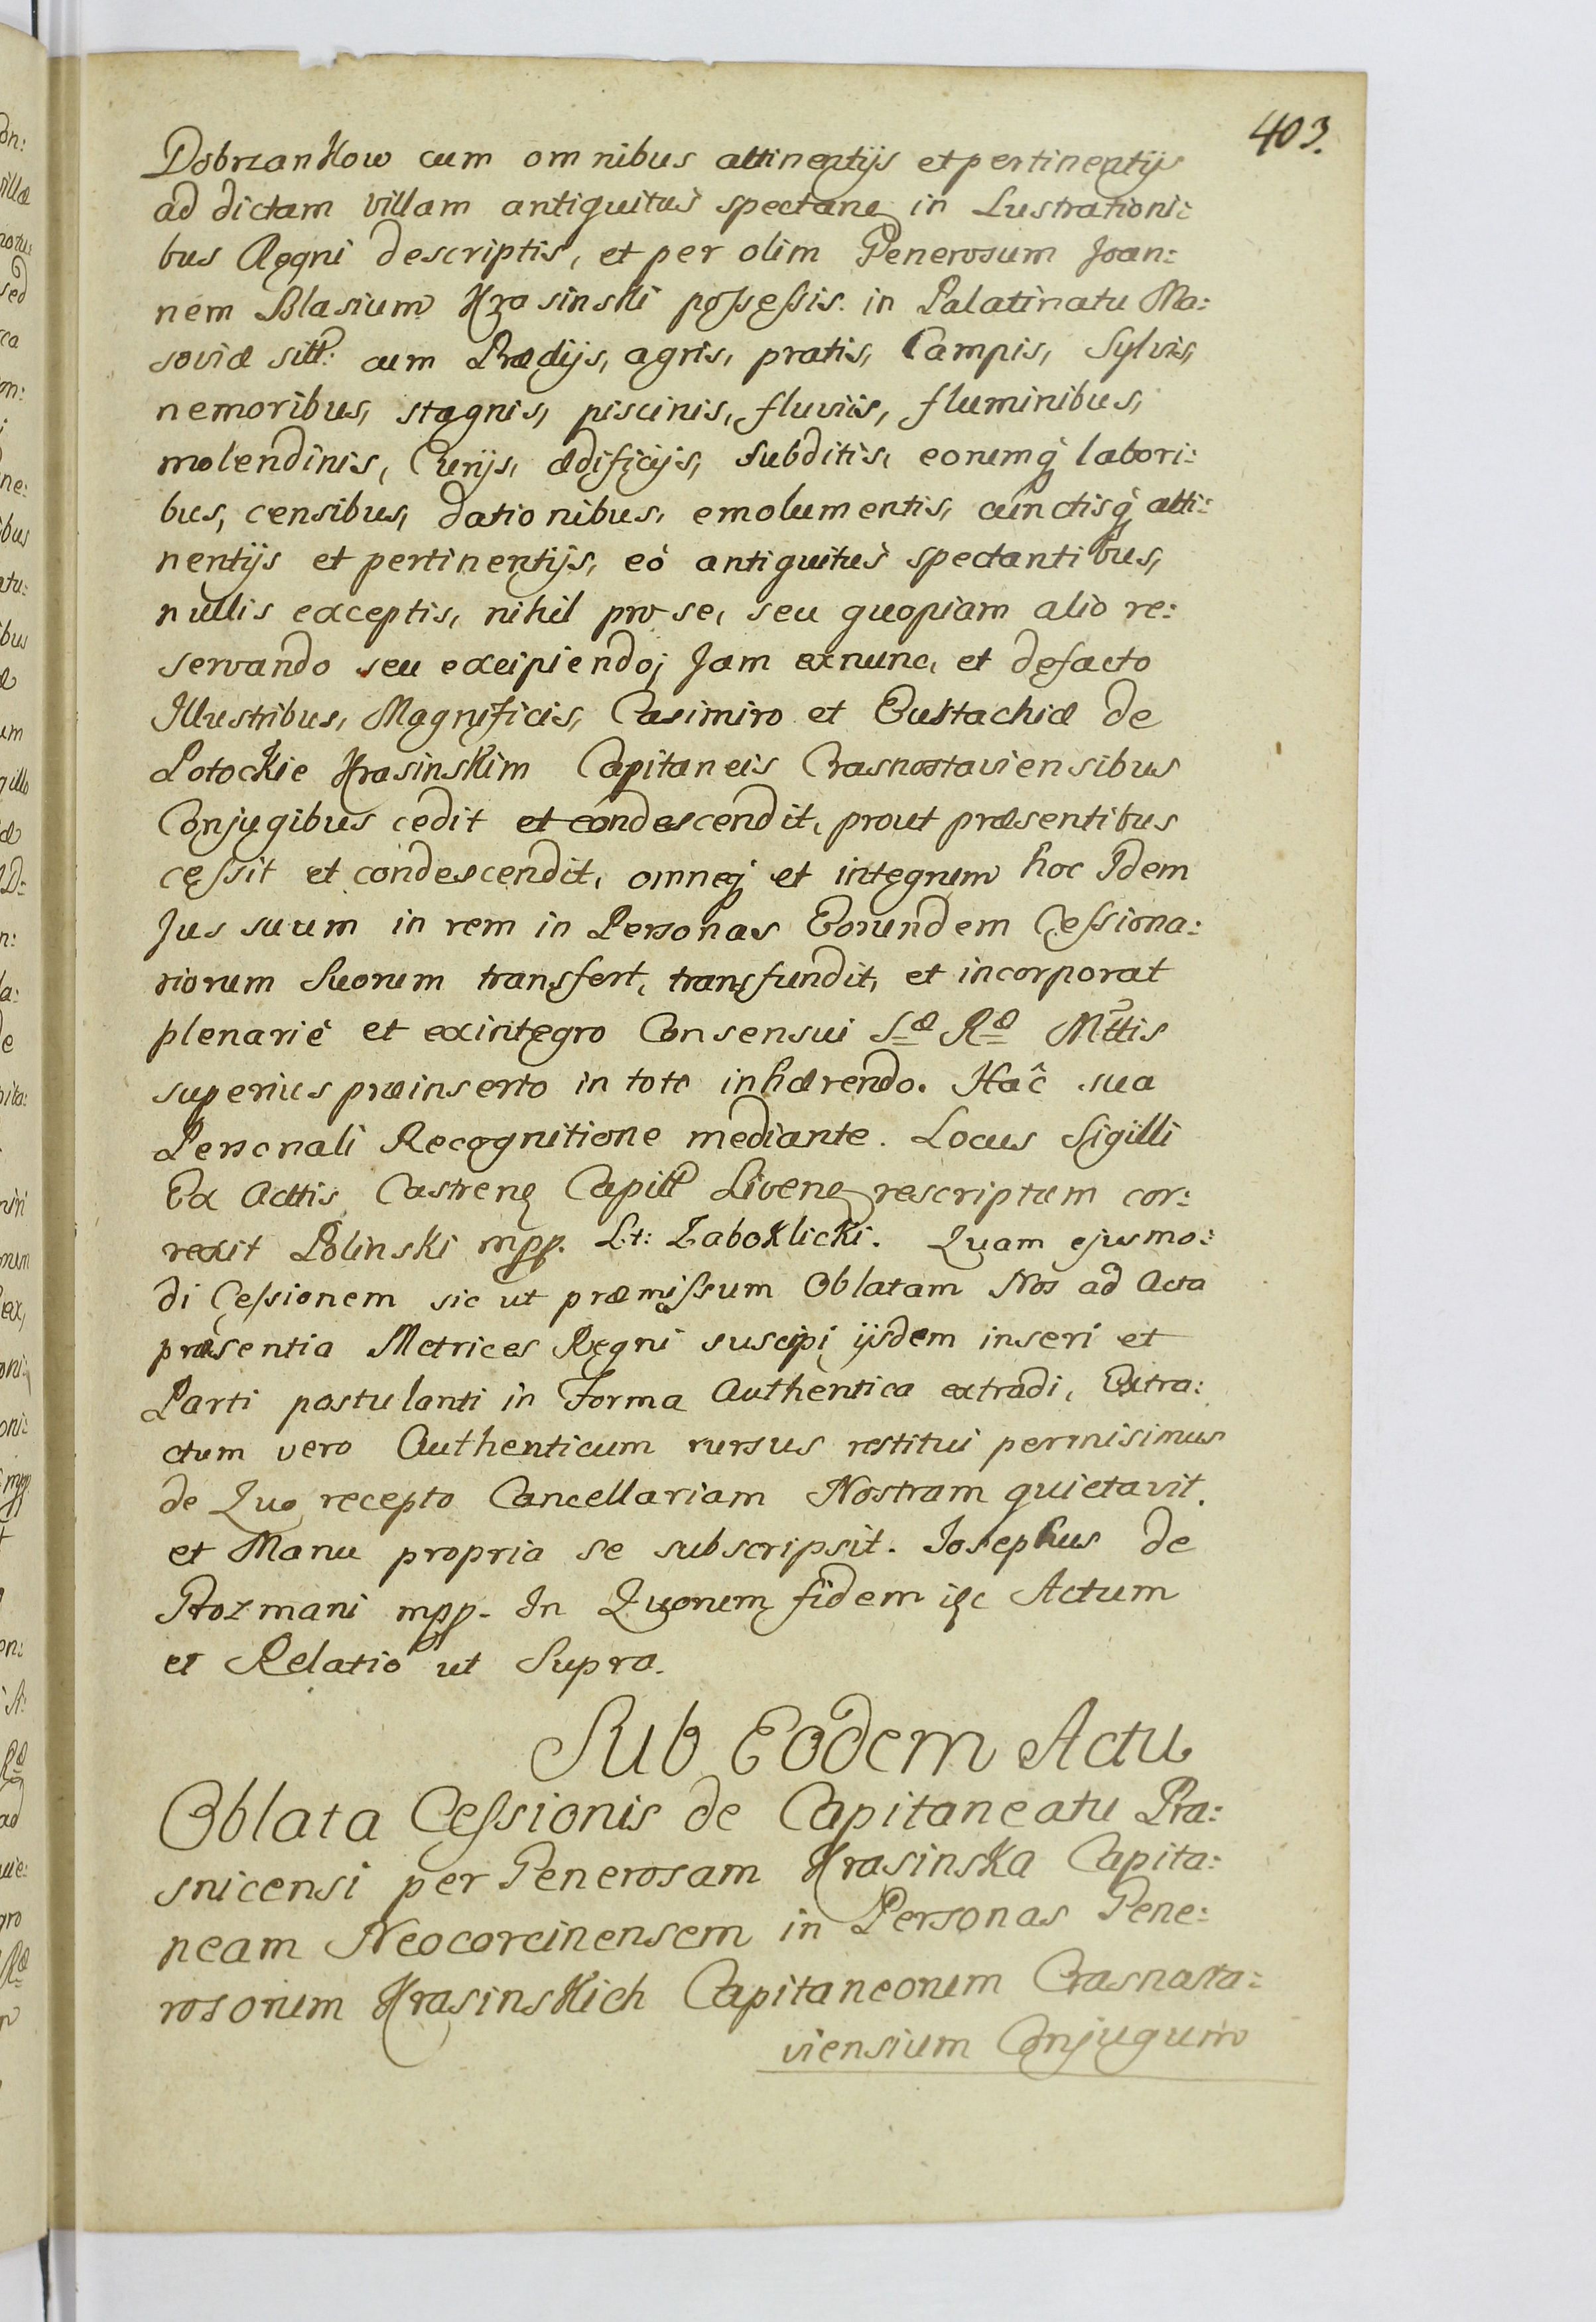 403.
Dobrzankow cum omnibus attinentijs et pertinentijs
ad dictam villam antiquitus spectanę in Lustrationi:
bus Regni descriptis, et per olim Generosum Joan:
nem Blasium Krasinski poſseſsis. in Palatinatu Ma:
soviæ sitt: cum Prædijs, agris, pratis, Campis, Sylvis,
nemoribus, stagnis, piscinis, fluviis, fluminibus,
molendinis, Curijs, ædificijs, subditis, eorumq̓ labori:
bus, censibus, dationibus, emolumentis, cunctisq̓ atti:
nentijs et pertinentijs, eò antiquitùs spectantibus,
nullis exceptis, nihil pro se, seu quopiam alio re:
servando seu excipiendo; Jam exnunc, et defacto
Illustribus, Magnificis, Casimiro et Eustachiæ de
Potockie Krasinskim Capitaneis Crasnostaviensibus
Conjugibus cedit et condescendit, prout præsentibus
ceſsit et condescendit, omneq̓ et integrum hoc Idem
Jus suum in rem in Personas Eorundem Ceſsiona:
riorum Suorum transfert, transfundit, et incorporat
plenariè et exintegro Consensui S.æ R.æ Mttis
superius præinserto in toto inhærendo. Hâc sua
Personali Recognitione mediante. Locus Sigilli
Ex Acttis Castrenę Capitt Livenę rescriptum cor:
rexit Polinski mpp. Lt: Zaboklicki. Quam ejusmo:
di Ceſsionem sic ut præmiſsum Oblatam Nos ad Acta
præsentia Metrices Regni suscipi ijsdem inseri et
Parti postulanti in Forma Authentica extradi, Extra:
ctum vero Authenticum rursus restitui permisimus
de Quo recepto Cancellariam Nostram quietavit.
et Manu propria se subscripsit. Josephus de
Rozmani mpp. In Quorum fidem Actum
et Relatio ut Supra.
Sub Eodem Actu
Oblata Ceſsionis de Capitaneatu Pra:
snicensi per Generosam Krasinska Capita:
neam Neocorcinensem in Personas Gene:
rosorum Krasinskich Capitaneorum Crasnasta:
viensium Conjugum